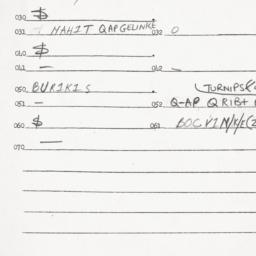 030 $
031 NAHIT QAPGELINKE 032 0
040 $
041 — 042 —
050 BURIKIS (TURNIPS
051 — 052 Q-AP QRIBT
060 $ 061 BOCVIM/K/E(2
070 —